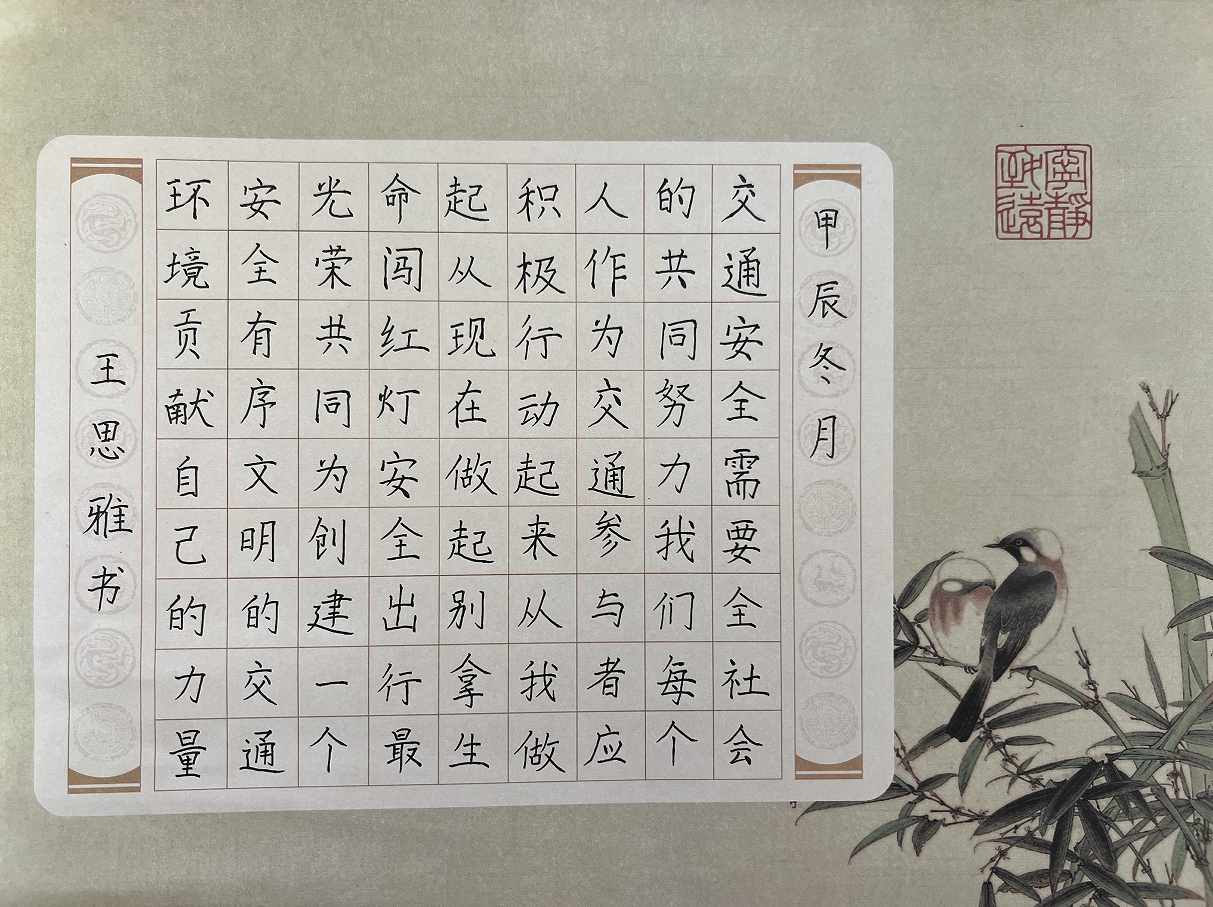 甲辰冬月
交通安全需要全社会
的共同努力我们每个
人作为交通参与者应
积极行动起来从我做
起从现在做起别拿生
命闯红灯安全出行最
光荣共同为创建一个
安全有序文明的交通
环境贡献自己的力量
王思雅书
寧靜
致遠